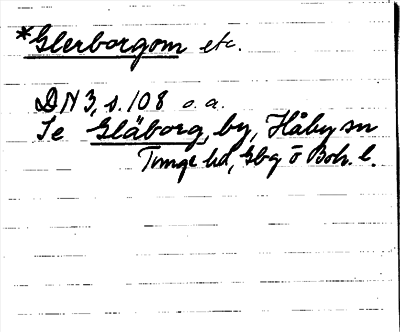 *Glerborgom etc.
DN 3, s. 108 o.a.
Se Gläborg, by, Håby sn
Tunge hd, Gbg o Boh. l.